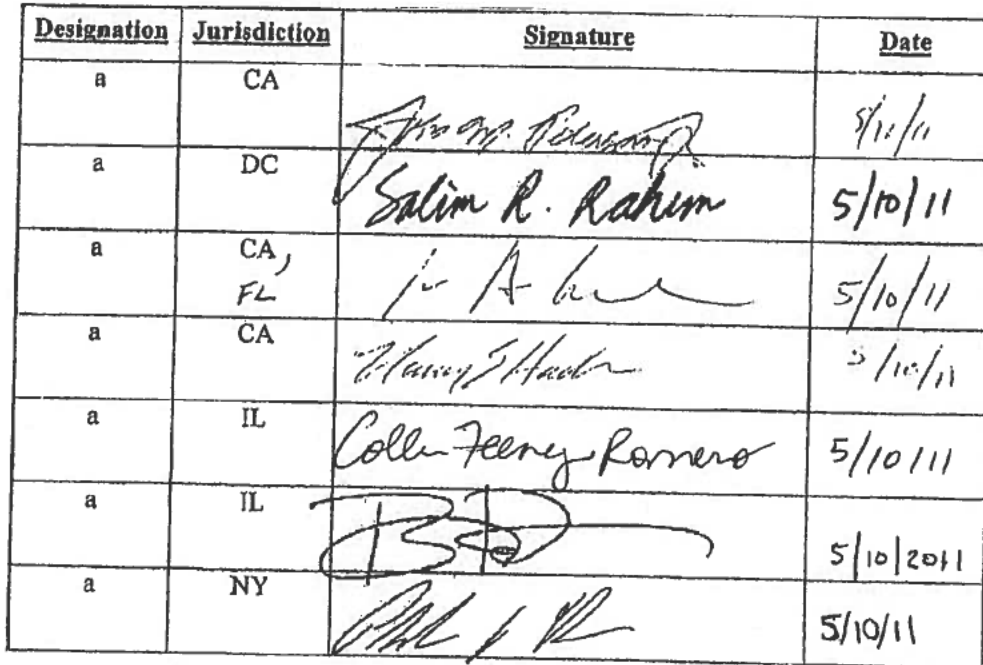 Designation Jurisdiction Signature Date
a CA 5/11/11
a DC Salim R. Rahim 5/10/11
a CA, 5/10/11
FL
a CA 5/10/11
a IL Colleen Feeney Romero 5/10/11
a IL 5/10/2011
a NY 5/10/11